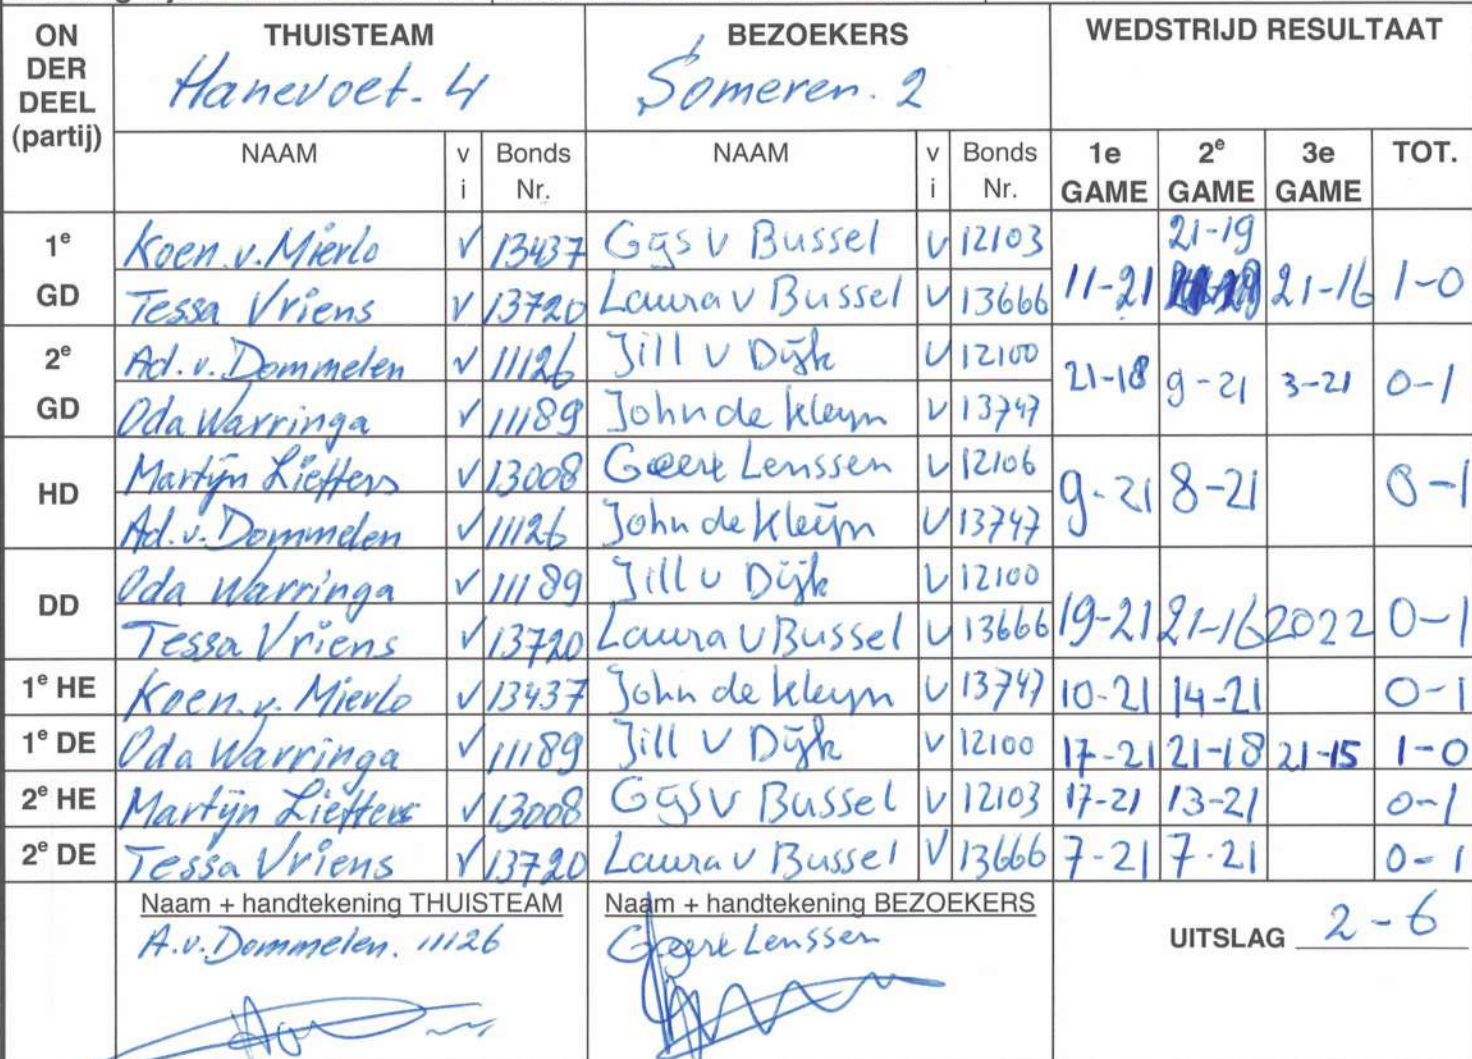 ON DER DEEL (partij) THUISTEAM BEZOEKERS WEDSTRIJD RESULTAAT
Hanevoet. 4 Someren. 2
NAAM v i Bonds Nr. NAAM v i Bonds Nr. 1e GAME 2e GAME 3e GAME TOT.
1e GD Koen v. Mierlo v 13437 Gijs v Bussel v 12103 11-21 21-19 21-16 1-0
Tessa Vriens v 13720 Laura v Bussel v 13666
2e GD Ad. v. Dommelen v 11126 Jill v Dijk v 12100 21-18 9-21 3-21 0-1
Oda Warringa v 11189 John de Kleijn v 13747
HD Martijn Lieffers v 13008 Geert Lenssen v 12106 9-21 8-21 0-1
Ad. v. Dommelen v 11126 John de Kleijn v 13747
DD Oda Warringa v 11189 Jill v Dijk v 12100 19-21 21-16 2022 0-1
Tessa Vriens v 13720 Laura v Bussel v 13666
1e HE Koen. v. Mierlo v 13437 John de Kleijn v 13747 10-21 14-21 0-1
1e DE Oda Warringa v 11189 Jill v Dijk v 12100 17-21 21-18 21-15 1-0
2e HE Martijn Lieffers v 13008 Gijs v Bussel v 12103 17-21 13-21 0-1
2e DE Tessa Vriens v 13720 Laura v Bussel v 13666 7-21 7-21 0-1
Naam + handtekening THUISTEAM Naam + handtekening BEZOEKERS
A.v. Dommelen. 11126 Geert Lenssen UITSLAG 2-6